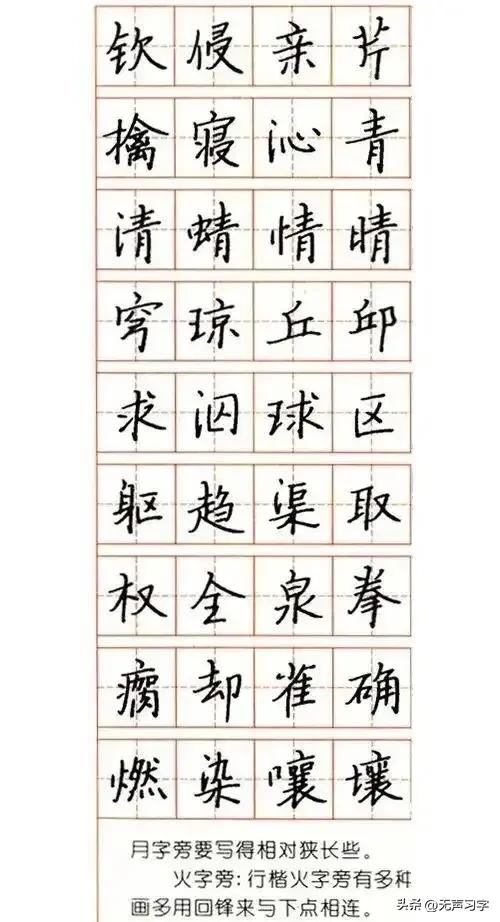 钦 侵 亲 芹
擒 寝 沁 青
清 蜻 情 晴
穹 琼 丘 邱
求 泅 球 区
躯 趋 渠 取
权 全 泉 拳
瘸 却 雀 确
燃 染 嚷 壤
月字旁要写得相对狭长些。
火字旁:行楷火字旁有多种
画多用回锋来与下点相连。
头条 @无声习字